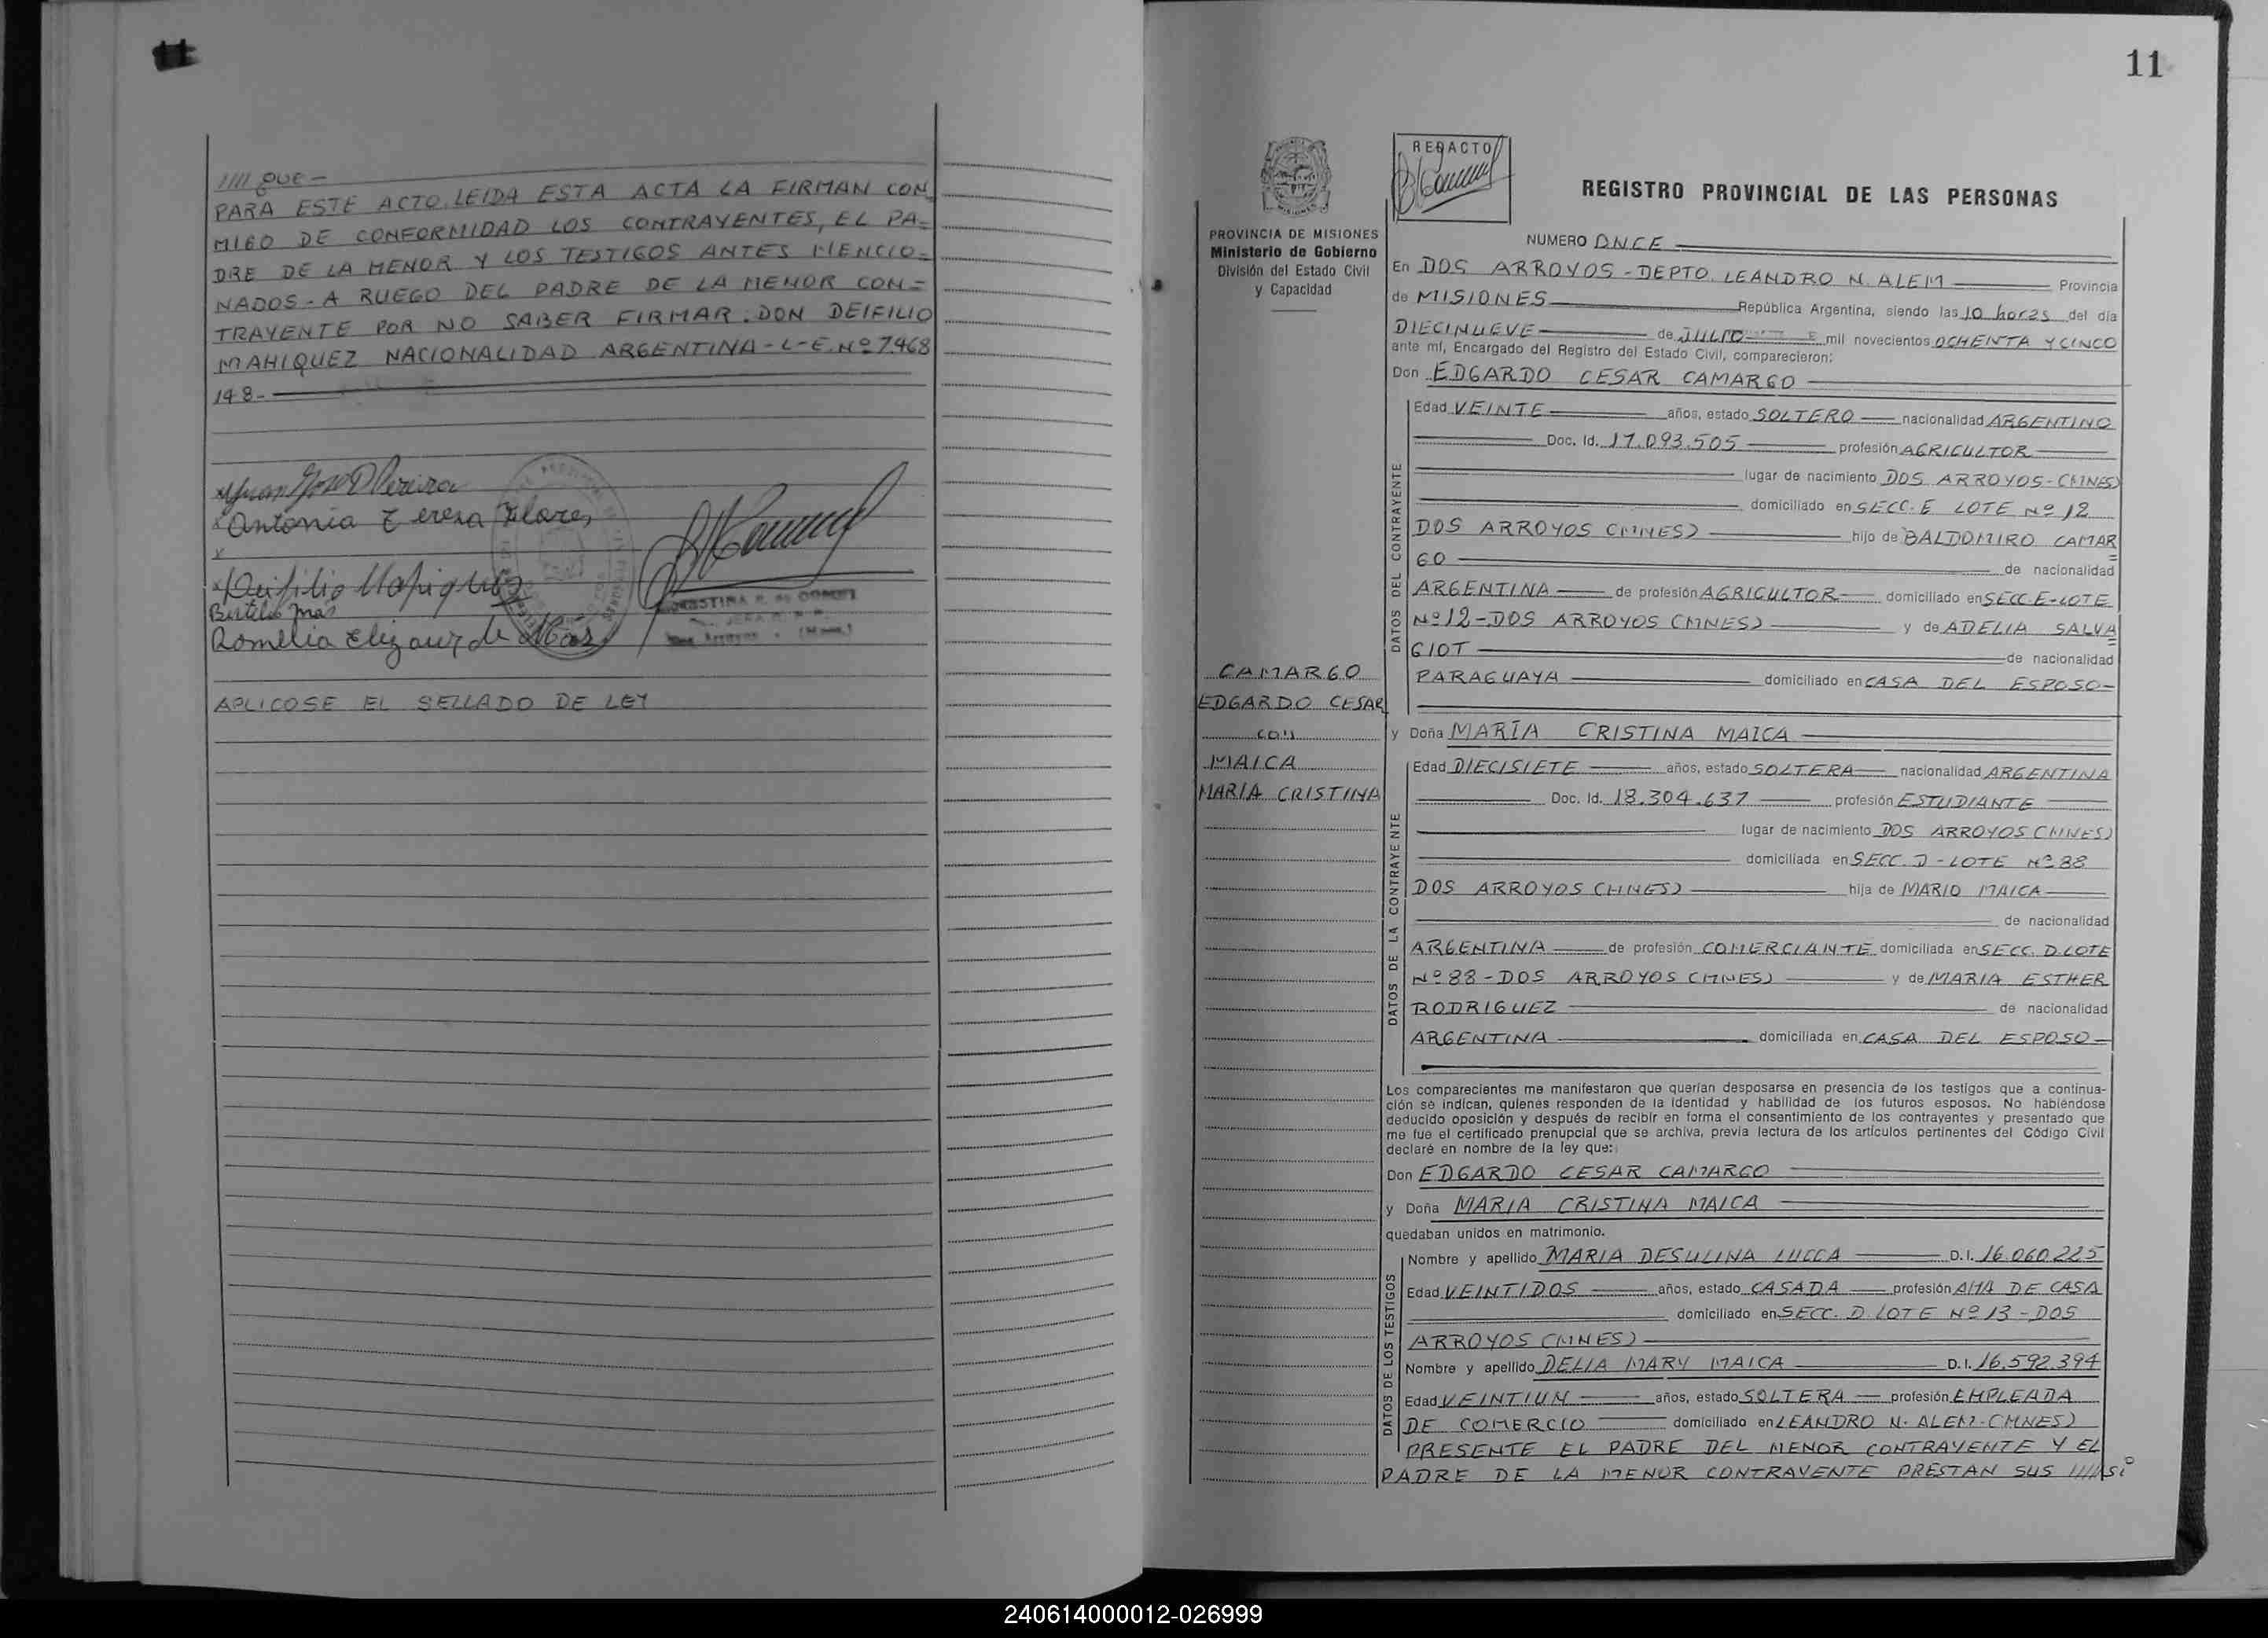 11
//// que -
PARA ESTE ACTO. LEIDA ESTA ACTA LA FIRMAN CON
MIGO DE CONFORMIDAD LOS CONTRAYENTES, EL PA=
DRE DE LA MENOR Y LOS TESTIGOS ANTES MENCIO=
NADOS - A RUEGO DEL PADRE DE LA MENOR CON=
TRAYENTE POR NO SABER FIRMAR. DON DEIFILIO
MAHIQUEZ NACIONALIDAD ARGENTINA - L-E. Nº 7.468
148-
Antonia Teresa Flores
Romelia Elizaur de Más
APLICOSE EL SELLADO DE LEY
11
REDACTO
REGISTRO PROVINCIAL DE LAS PERSONAS
PROVINCIA DE MISIONES
Ministerio de Gobierno
División del Estado Civil
y Capacidad
NUMERO ONCE
En DOS ARROYOS - DEPTO. LEANDRO N. ALEM Provincia
de MISIONES República Argentina, siendo las 10 horas del día
DIECINUEVE de JULIO mil novecientos OCHENTA Y CINCO
ante mí, Encargado del Registro del Estado Civil, comparecieron:
Don EDGARDO CESAR CAMARGO
DATOS DEL CONTRAYENTE
Edad VEINTE años, estado SOLTERO nacionalidad ARGENTINO
Doc. Id. 17.093.505 profesión AGRICULTOR
lugar de nacimiento DOS ARROYOS - (MNES)
domiciliado en SECC. E LOTE Nº 12
DOS ARROYOS (MNES) hijo de BALDOMIRO CAMAR
GO de nacionalidad
ARGENTINA de profesión AGRICULTOR domiciliado en SECC. E - LOTE
Nº 12 - DOS ARROYOS (MNES) y de ADELIA SALVA
GIOT de nacionalidad
PARAGUAYA domiciliado en CASA DEL ESPOSO-
CAMARGO
EDGARDO CESAR
con
MAICA
MARIA CRISTINA
y Doña MARIA CRISTINA MAICA
DATOS DE LA CONTRAYENTE
Edad DIECISIETE años, estado SOLTERA nacionalidad ARGENTINA
Doc. Id. 18.304.637 profesión ESTUDIANTE
lugar de nacimiento DOS ARROYOS (MNES)
domiciliada en SECC. D - LOTE Nº 88
DOS ARROYOS (MNES) hija de MARIO MAICA
de nacionalidad
ARGENTINA de profesión COMERCIANTE domiciliada en SECC. D. LOTE
Nº 88 - DOS ARROYOS (MNES) y de MARIA ESTHER
RODRIGUEZ de nacionalidad
ARGENTINA domiciliada en CASA DEL ESPOSO
Los comparecientes me manifestaron que querían desposarse en presencia de los testigos que a continua-
ción se indican, quienes responden de la identidad y habilidad de los futuros esposos. No habiéndose
deducido oposición y después de recibir en forma el consentimiento de los contrayentes y presentado que
me fue el certificado prenupcial que se archiva, previa lectura de los artículos pertinentes del Código Civil
declaré en nombre de la ley que:
Don EDGARDO CESAR CAMARGO
y Doña MARIA CRISTINA MAICA
quedaban unidos en matrimonio.
DATOS DE LOS TESTIGOS
Nombre y apellido MARIA DESULINA LUCCA D.I. 16.060.225
Edad VEINTIDOS años, estado CASADA profesión AMA DE CASA
domiciliado en SECC. D. LOTE Nº 13 - DOS
ARROYOS (MNES)
Nombre y apellido DELIA MARY MAICA D.I. 16.592.394
Edad VEINTIUN años, estado SOLTERA profesión EMPLEADA
DE COMERCIO domiciliado en LEANDRO N. ALEM - (MNES)
PRESENTE EL PADRE DEL MENOR CONTRAYENTE Y EL
PADRE DE LA MENOR CONTRAYENTE PRESTAN SUS ////
240614000012-026999